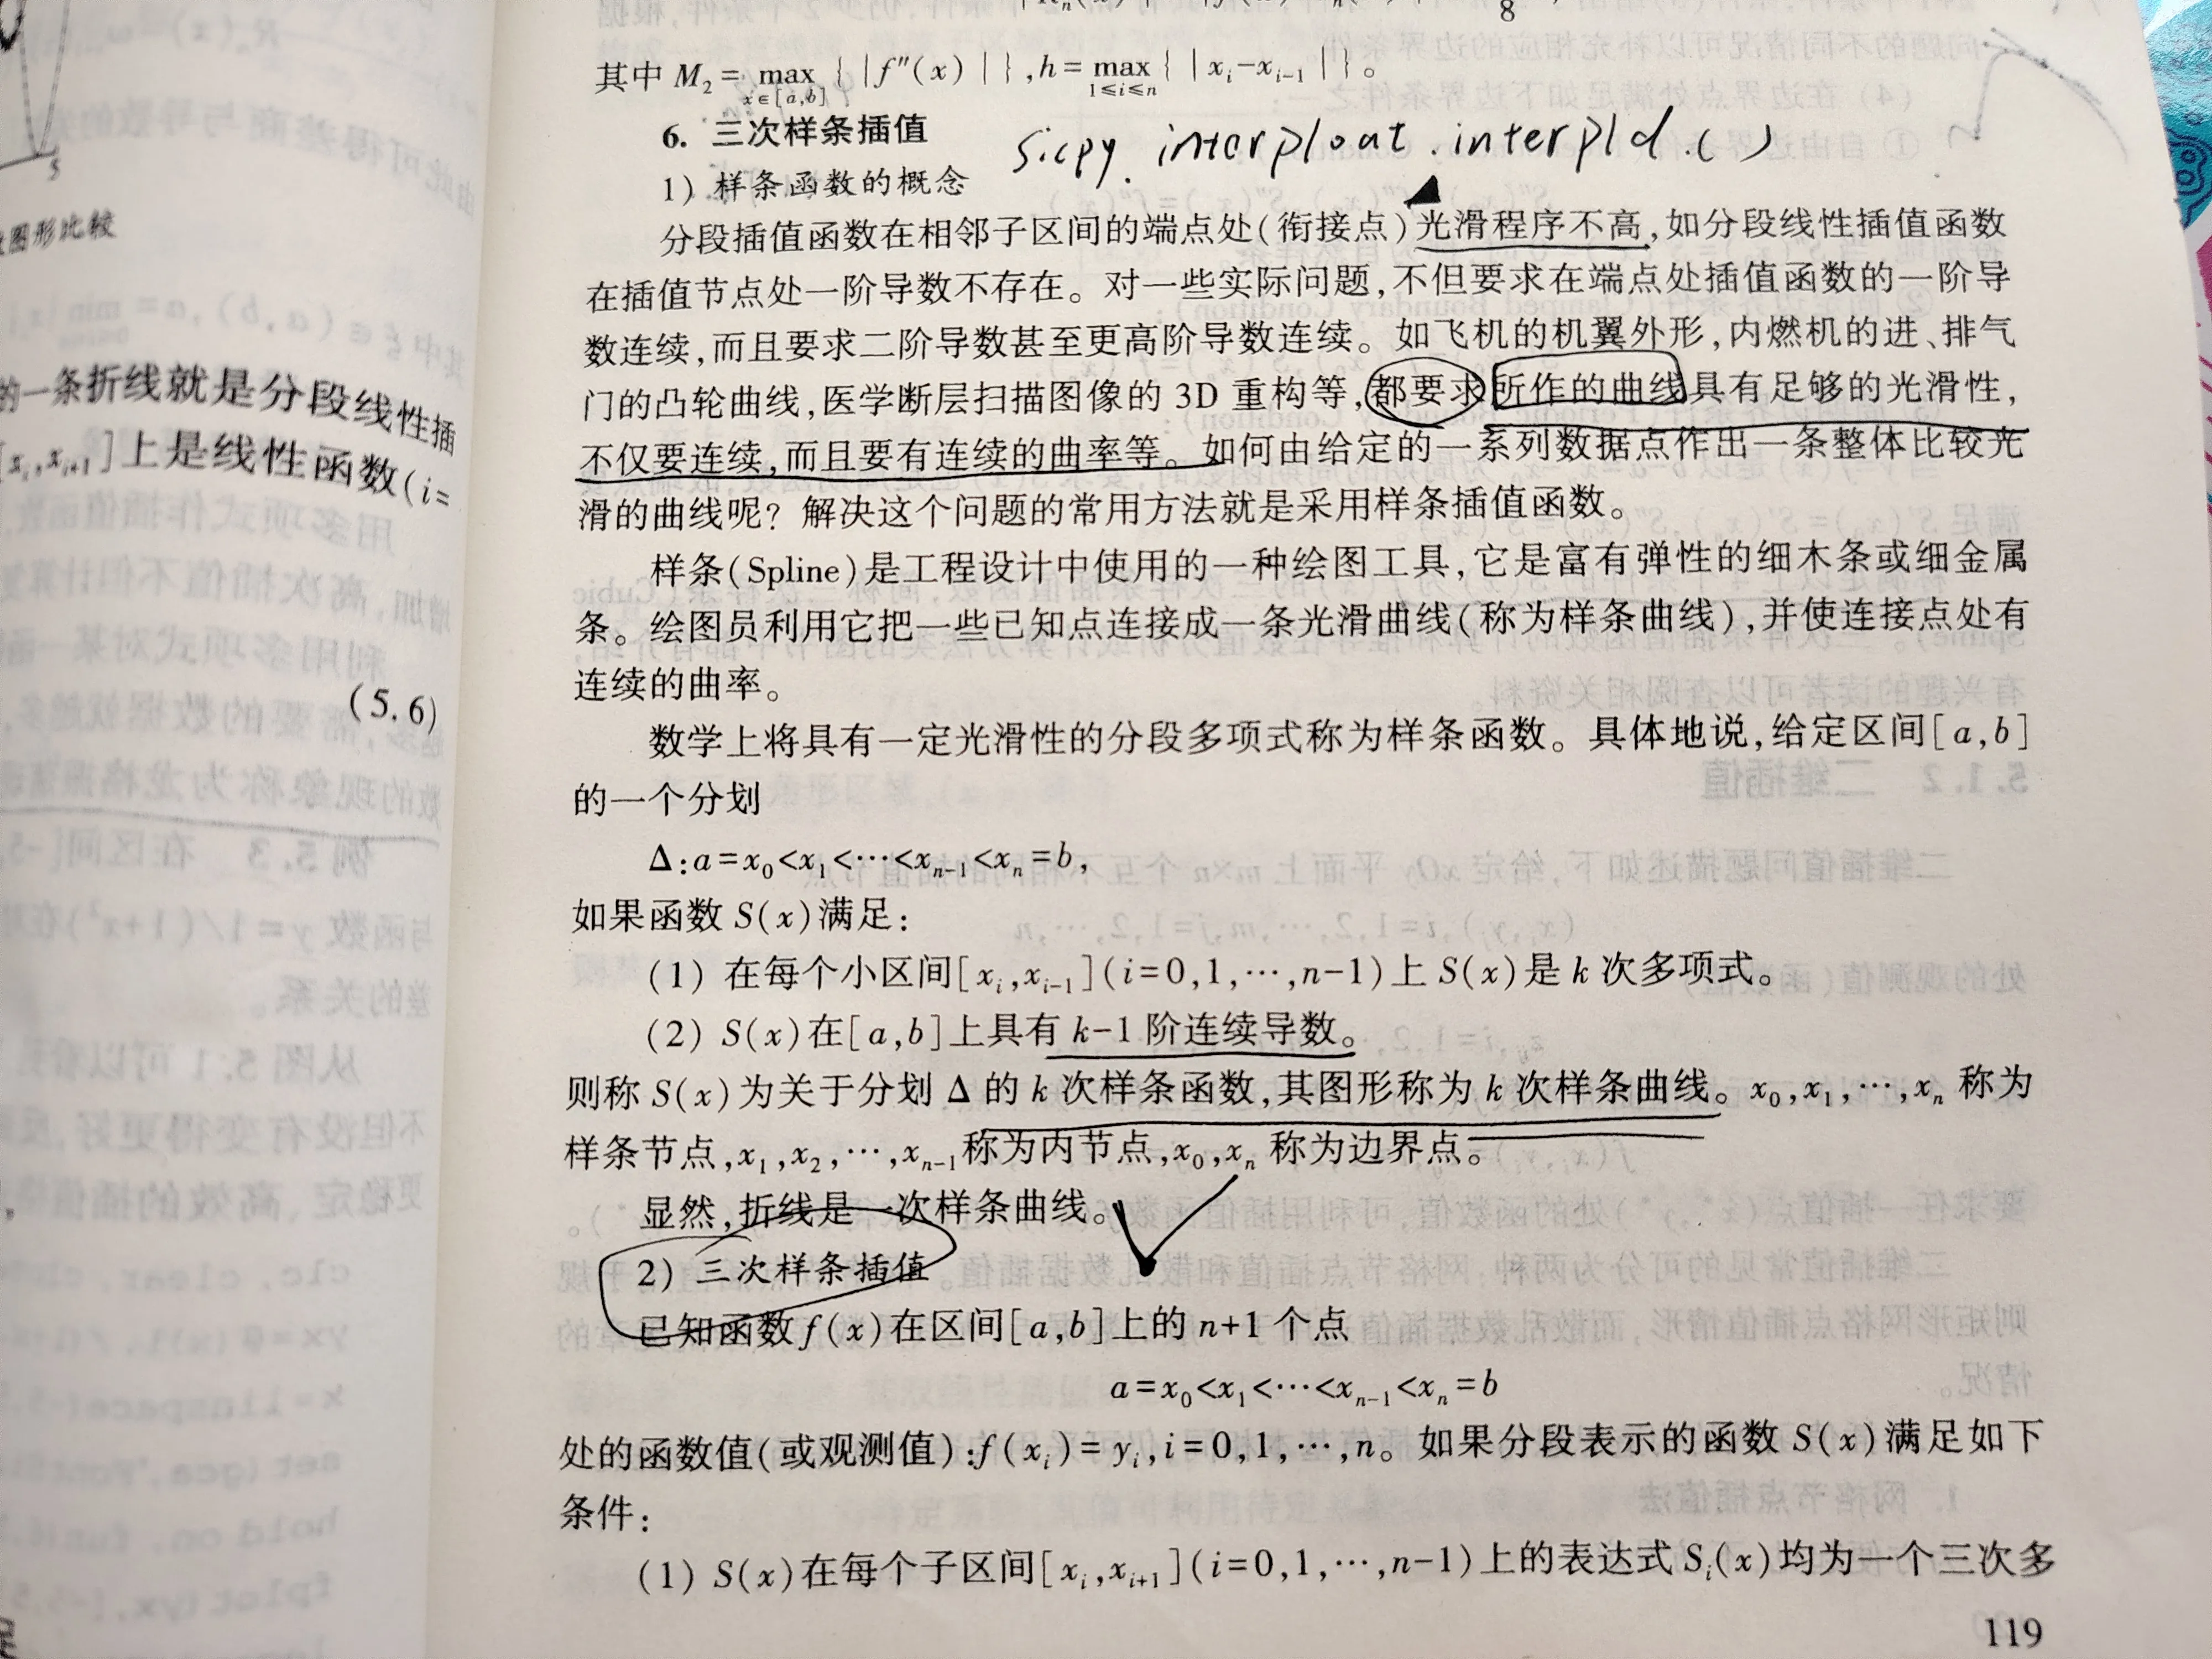 的一条折线就是分段线性插
[x_i,x_{i+1}]上是线性函数(i=
(5.6)
图形比较
8
其中 M₂ = max_{x∈[a,b]} { |f″(x)| }, h = max_{1≤i≤n} { |x_i-x_{i-1}| }。
6. 三次样条插值
sicpy. interploat. interpld.()
1) 样条函数的概念
分段插值函数在相邻子区间的端点处(衔接点)光滑程序不高,如分段线性插值函数
在插值节点处一阶导数不存在。对一些实际问题,不但要求在端点处插值函数的一阶导
数连续,而且要求二阶导数甚至更高阶导数连续。如飞机的机翼外形,内燃机的进、排气
门的凸轮曲线,医学断层扫描图像的 3D 重构等,都要求所作的曲线具有足够的光滑性,
不仅要连续,而且要有连续的曲率等。如何由给定的一系列数据点作出一条整体比较光
滑的曲线呢? 解决这个问题的常用方法就是采用样条插值函数。
样条(Spline)是工程设计中使用的一种绘图工具,它是富有弹性的细木条或细金属
条。绘图员利用它把一些已知点连接成一条光滑曲线(称为样条曲线),并使连接点处有
连续的曲率。
数学上将具有一定光滑性的分段多项式称为样条函数。具体地说,给定区间[a,b]
的一个分划
Δ:a=x₀<x₁<⋯<x_{n-1}<x_n=b,
如果函数 S(x)满足:
(1) 在每个小区间[x_i,x_{i-1}](i=0,1,⋯,n-1)上 S(x)是 k 次多项式。
(2) S(x)在[a,b]上具有 k-1 阶连续导数。
则称 S(x)为关于分划 Δ 的 k 次样条函数,其图形称为 k 次样条曲线。x₀,x₁,⋯,x_n 称为
样条节点,x₁,x₂,⋯,x_{n-1}称为内节点,x₀,x_n 称为边界点。
显然,折线是一次样条曲线。
2) 三次样条插值
已知函数 f(x)在区间[a,b]上的 n+1 个点
a=x₀<x₁<⋯<x_{n-1}<x_n=b
处的函数值(或观测值):f(x_i)=y_i,i=0,1,⋯,n。如果分段表示的函数 S(x)满足如下
条件:
(1) S(x)在每个子区间[x_i,x_{i+1}](i=0,1,⋯,n-1)上的表达式 S_i(x)均为一个三次多
119